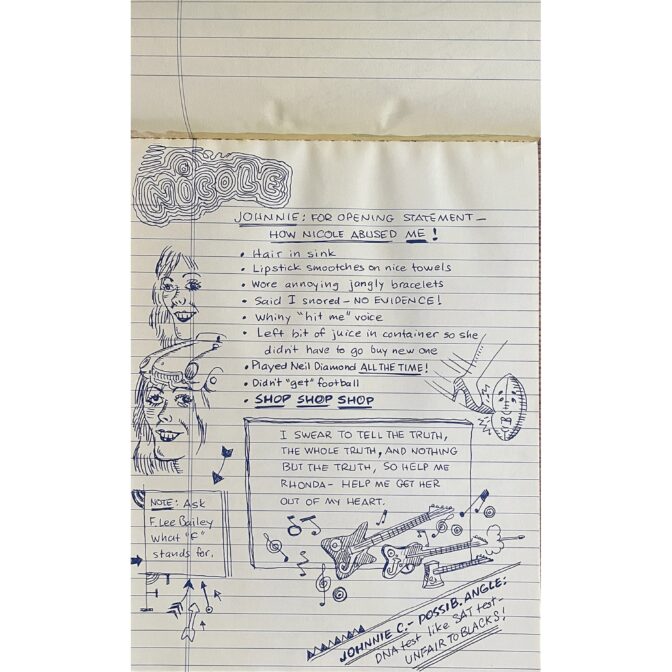 NICOLE
JOHNNIE: FOR OPENING STATEMENT—
HOW NICOLE ABUSED ME!
• Hair in sink
• Lipstick smootches on nice towels
• Wore annoying jangly bracelets
• Said I snored – NO EVIDENCE!
• Whiny "hit me" voice
• Left bit of juice in container so she
didn't have to go buy new one
• Played Neil Diamond ALL THE TIME!
• Didn't "get" football
• SHOP SHOP SHOP
I SWEAR TO TELL THE TRUTH,
THE WHOLE TRUTH, AND NOTHING
BUT THE TRUTH, SO HELP ME
RHONDA – HELP ME GET HER
OUT OF MY HEART.
NOTE: Ask
F. Lee Bailey
what "F"
stands for.
JOHNNIE C.– POSSIB. ANGLE:
DNA test like SAT test–
UNFAIR TO BLACKS!